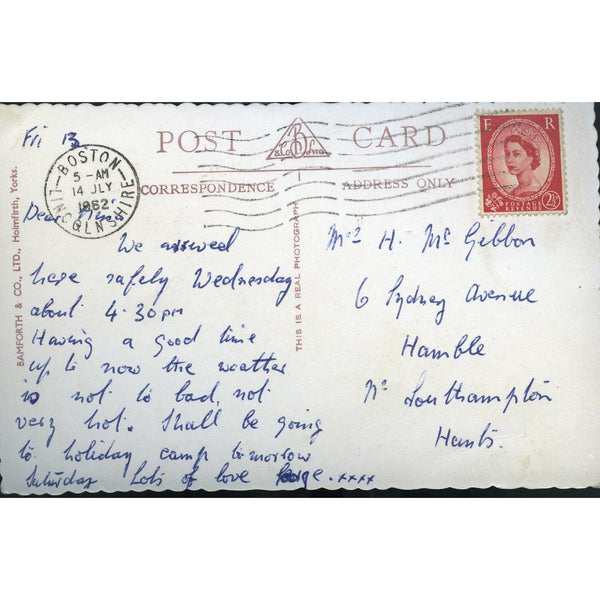 Fri 13
POST CARD
B & Co Ltd
CORRESPONDENCE
ADDRESS ONLY
BOSTON
LINCOLNSHIRE
5 - AM
14 JLY
1962
E R
POSTAGE
REVENUE
2½
BAMFORTH & CO., LTD., Holmfirth, Yorks.
THIS IS A REAL PHOTOGRAPH
Dear
We arrived
here safely Wednesday
about 4.30pm
Having a good time
up to now the weather
is not to bad, not
very hot. Shall be going
to holiday camp tomorrow
Saturday Lots of love xxxx
Mrs H. McGibbon
6 Sydney Avenue
Hamble
Nr Southampton
Hants.